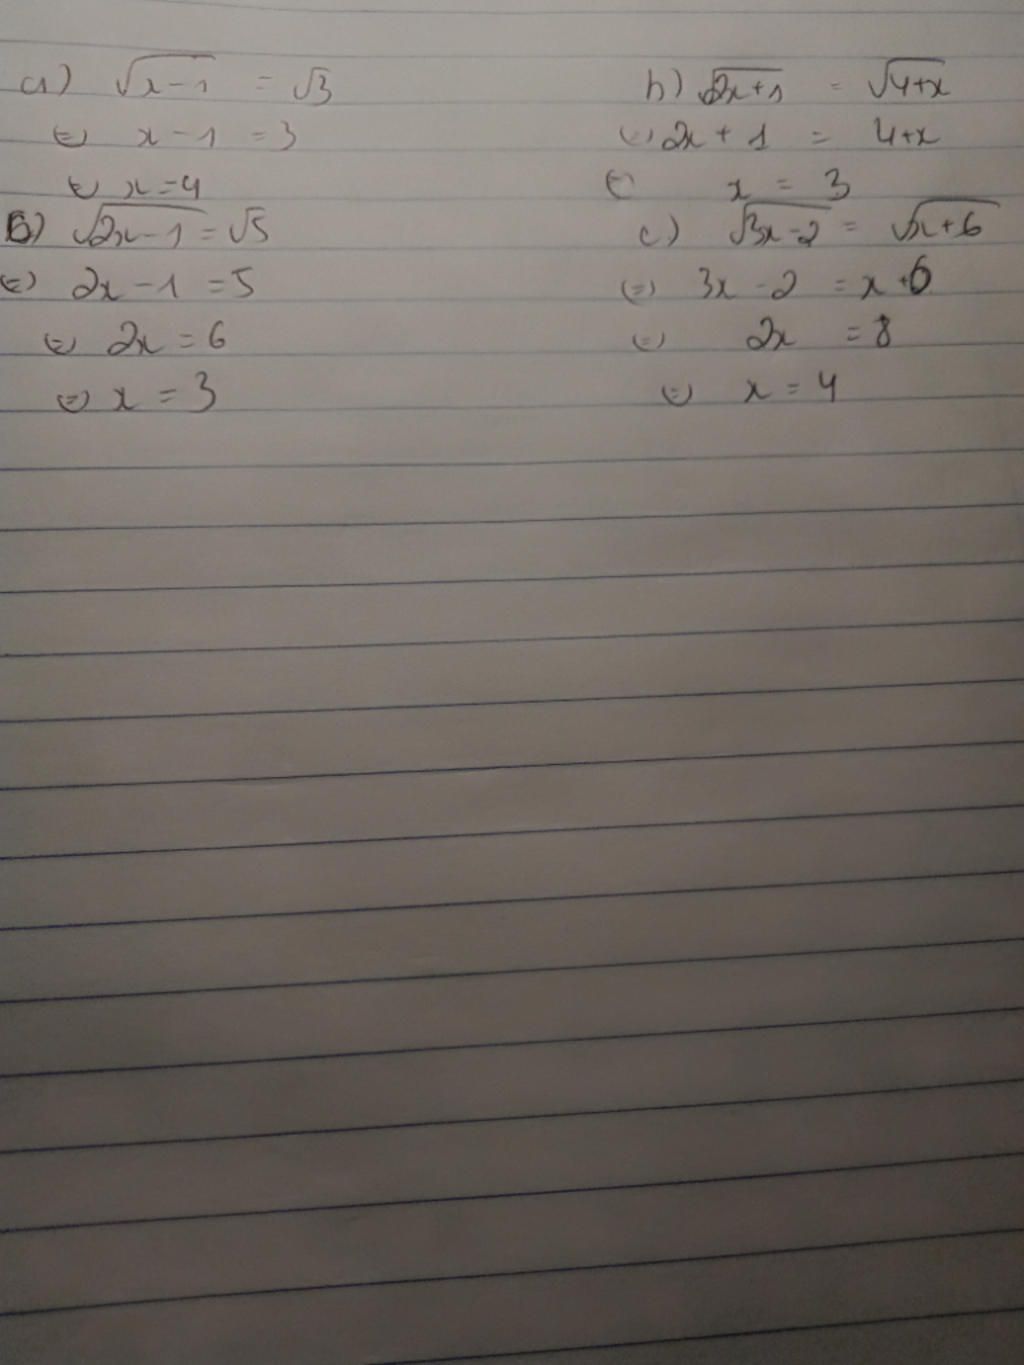 a) √x-1 = √3
(=) x-1 = 3
(=) x=4
B) √2x-1 = √5
(=) 2x-1 = 5
(=) 2x = 6
(=) x = 3
b) √2x+1 = √4+x
(=) 2x + 1 = 4+x
(=) x = 3
c) √3x-2 = √x+6
(=) 3x -2 = x +6
(=) 2x = 8
(=) x = 4